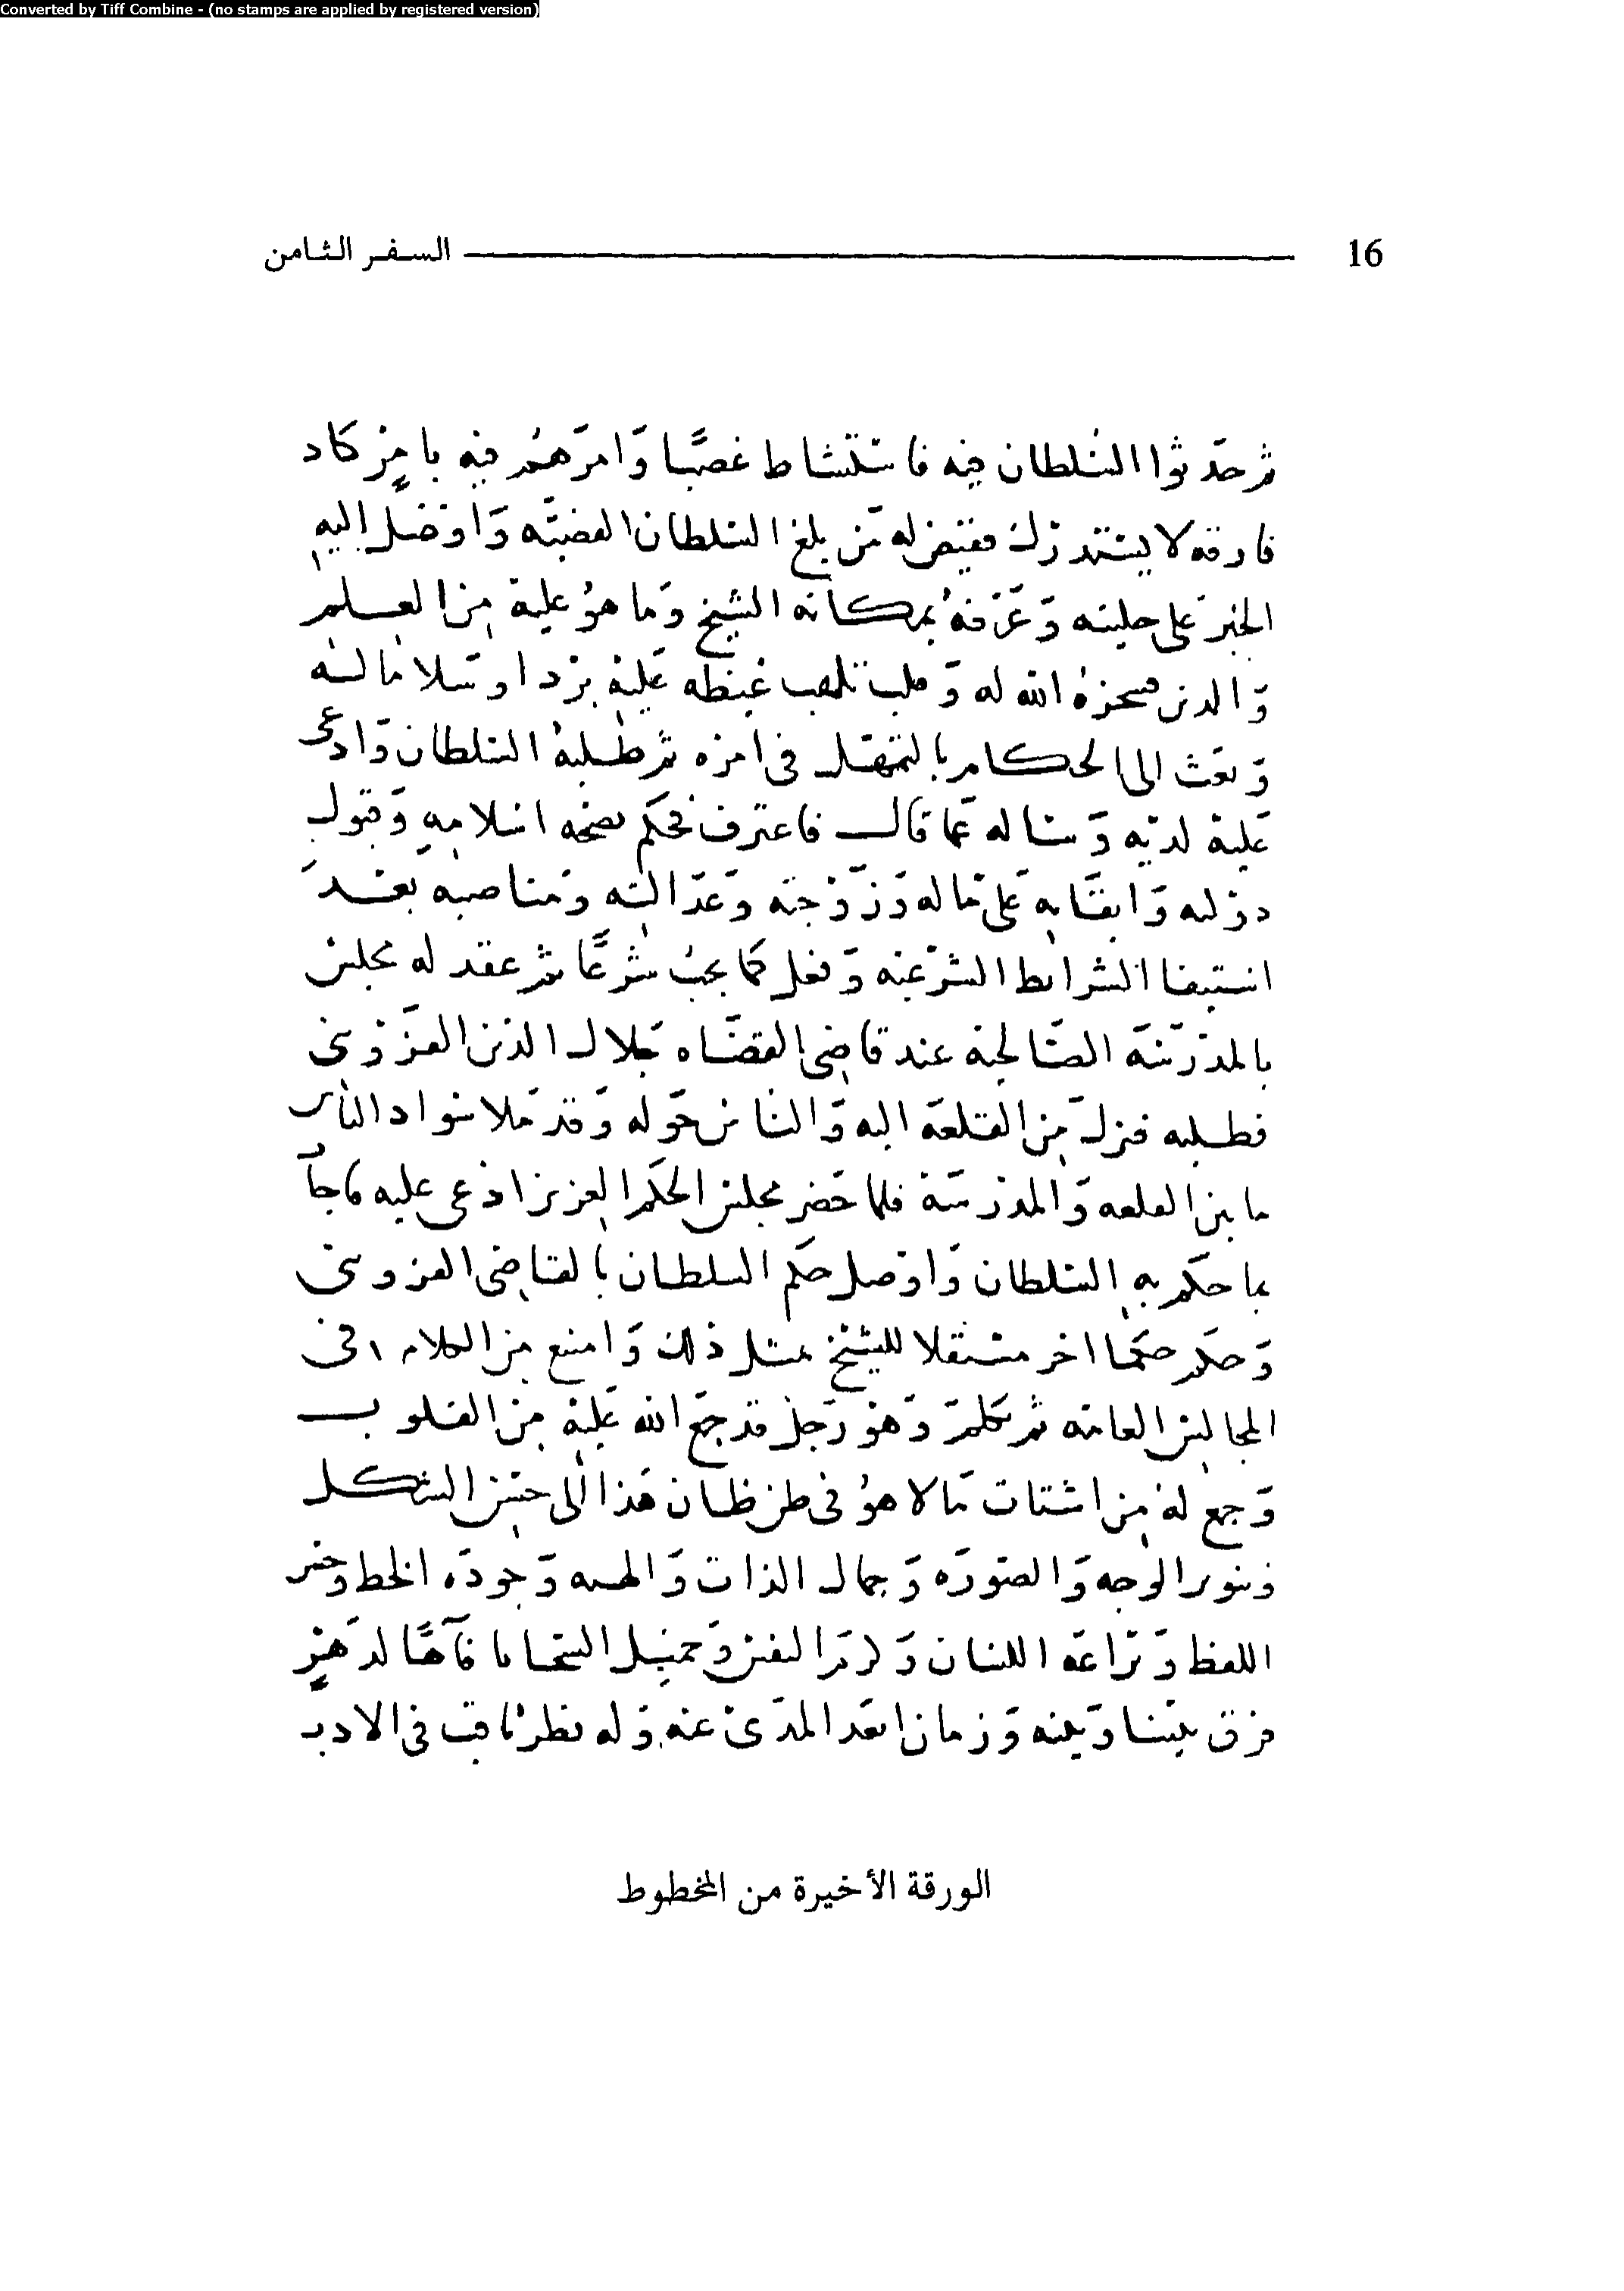 Converted by Tiff Combine - (no stamps are applied by registered version)
16 السفر الثامن
ثم حدثوا السلطان فيه فاستشاط غضبا وامرهم فيه بامر كاد
فارقه لا يستدرك فقيض له من بلغ السلطان القضية واوصل اليه
الخبر على جليته وعرفه بمكانه الشيخ وما هو عليه من العلم
والدين فسخره الله له وقلب تلهب غيظه عليه بردا وسلاما
وبعث الى الحكام بالتمهل في امره ثم طلبه السلطان وادعى
عليه لديه وساله عما قال فاعترف فحكم بصحه اسلامه وقبول
وابقايه على ماله وزوجته وعدالته ومناصبه بعد
استيفا الشرايط الشرعيه وفعل كما يجب شرعا ثم عقد له مجلس
بالمدرسة الصالحية عند قاضي القضاه جلال الدين القزويني
فطلبه فنزل من القلعة اليه والناس حوله وقد ملا سواد الناس
ما بين القلعه والمدرسة فلما حضر مجلس الحكم العزيز ادعي عليه فاجا
بما حكم به السلطان واوصل حكم السلطان بالقاضي القزويني
وحكم حكما اخر مستقلا للشيخ بمثل ذلك وامنع من الكلام في
المجالس العامه ثم تكلم وهو رجل قد جمع الله عليه من القلوب
وجمع له من اشتات ما لا هو في ظن ظان هذا الى حسن الشكل
وتنوير الوجه والصورة وجمال الذات والهيه وجودة الخط وحسن
اللفظ وبراعة اللسان وكرم النفس وجميل السجايا فآها لدهر
فرق بيننا وبينه وزمان ابعد المدى عنه وله نظر ثاقب في الادب
الورقة الأخيرة من المخطوط